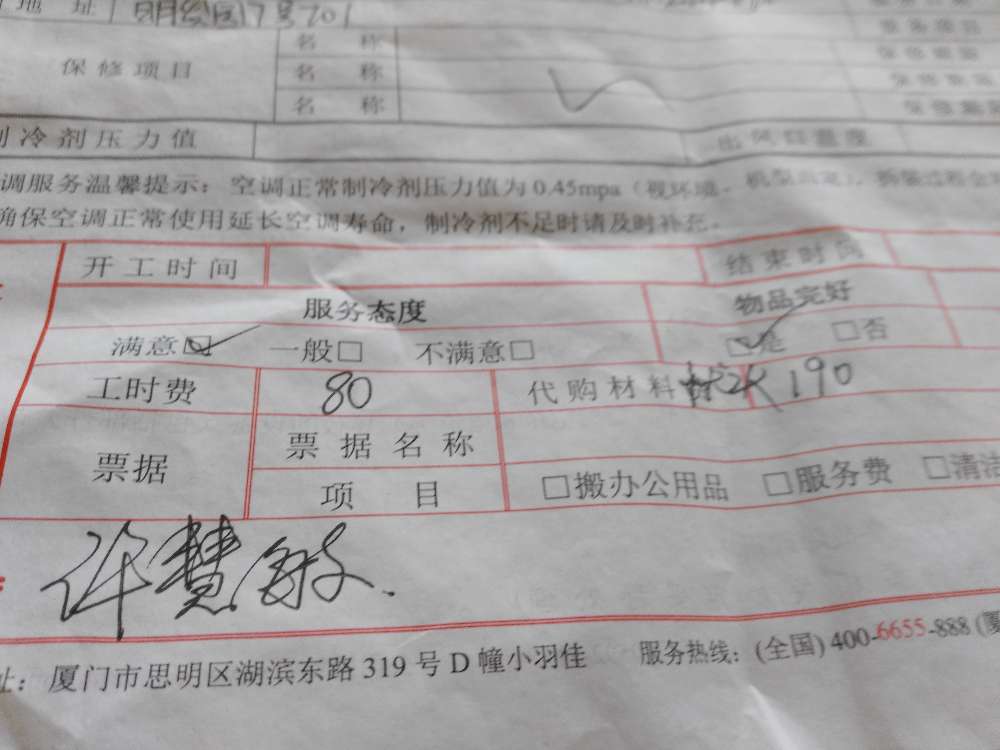 地 址 17号701
名 称
保修项目 名 称
名 称
制冷剂压力值 出风口温度
调服务温馨提示：空调正常制冷剂压力值为0.45mpa（视环境、机型而定），
确保空调正常使用延长空调寿命，制冷剂不足时请及时补充。
开工时间 结束时间
服务态度 物品完好
满意☑ 一般□ 不满意□ ☑是 □否
工时费 80 代购材料 190
票据 票据名称
项 目 □搬办公用品 □服务费 □清洁
许慧敏
址：厦门市思明区湖滨东路319号D幢小羽佳 服务热线：(全国) 400-6655-888 (厦